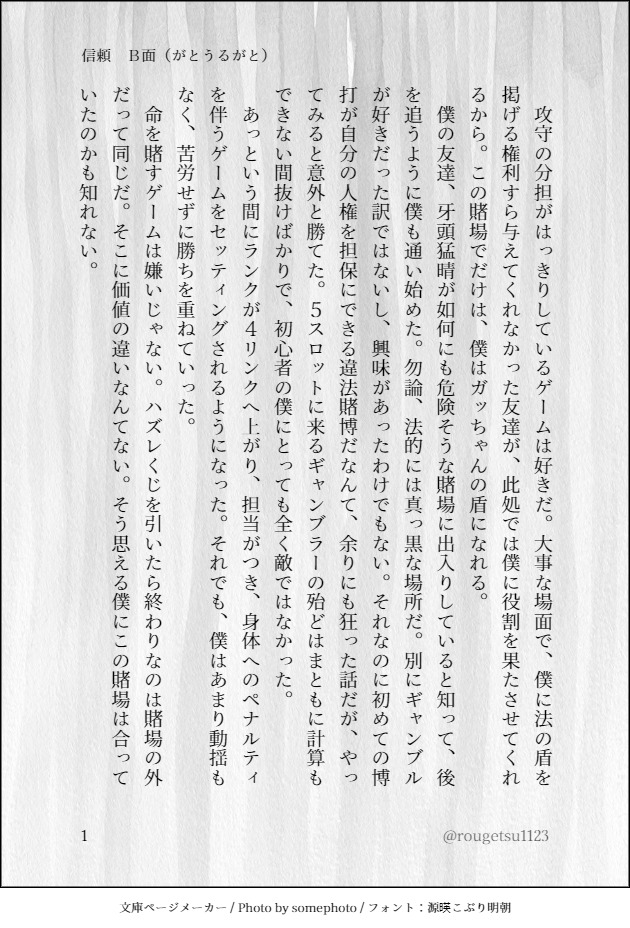 信頼　B面（がとうるがと）
　攻守の分担がはっきりしているゲームは好きだ。大事な場面で、僕に法の盾を
掲げる権利すら与えてくれなかった友達が、此処では僕に役割を果たさせてくれ
るから。この賭場でだけは、僕はガッちゃんの盾になれる。
　僕の友達、牙頭猛晴が如何にも危険そうな賭場に出入りしていると知って、後
を追うように僕も通い始めた。勿論、法的には真っ黒な場所だ。別にギャンブル
が好きだった訳ではないし、興味があったわけでもない。それなのに初めての博
打が自分の人権を担保にできる違法賭博だなんて、余りにも狂った話だが、やっ
てみると意外と勝てた。５スロットに来るギャンブラーの殆どはまともに計算も
できない間抜けばかりで、初心者の僕にとっても全く敵ではなかった。
　あっという間にランクが４リンクへ上がり、担当がつき、身体へのペナルティ
を伴うゲームをセッティングされるようになった。それでも、僕はあまり動揺も
なく、苦労せずに勝ちを重ねていった。
　命を賭すゲームは嫌いじゃない。ハズレくじを引いたら終わりなのは賭場の外
だって同じだ。そこに価値の違いなんてない。そう思える僕にこの賭場は合って
いたのかも知れない。
1
@rougetsu1123
文庫ページメーカー / Photo by somephoto / フォント：源暎こぶり明朝